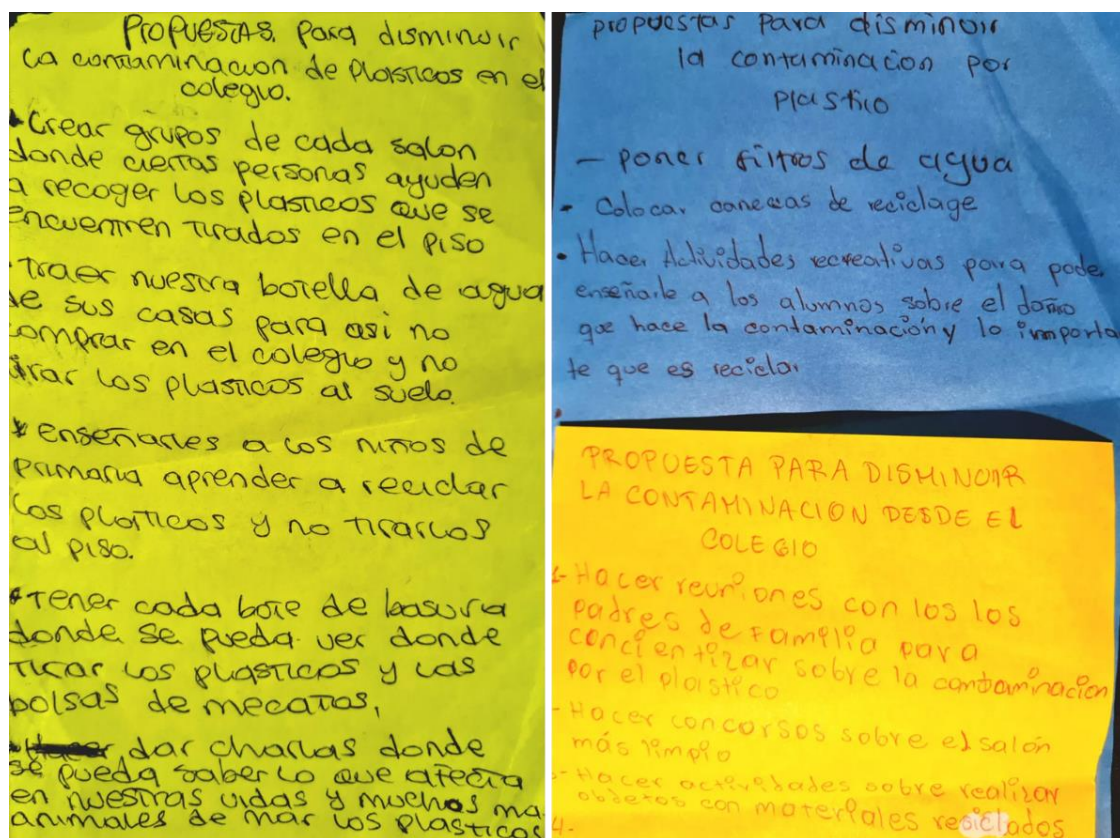 PROPUESTAS. Para disminuir
la contaminacion de plasticos en el
colegio.
• Crear grupos de cada salon
donde ciertas personas ayuden
a recoger los plasticos que se
encuentren tirados en el piso
• traer nuestra botella de agua
de sus casas para asi no
comprar en el colegio y no
tirar los plasticos al suelo.
* enseñarles a los niños de
primaria aprender a reciclar
los plasticos y no tirarlos
al piso.
* tener cada bote de basura
donde se pueda ver donde
tirar los plasticos y las
bolsas de mecatos,
• dar charlas donde
se pueda saber lo que afecta
en nuestras vidas y muchos ma
animales de mar los plasticos
propuestas para disminuir
la contaminacion por
plastico
- poner filtros de agua
• Colocar canecas de reciclage
• Hacer Actividades recreativas para pode
enseñarle a los alumnos sobre el daño
que hace la contaminación y lo importa
te que es reciclar
PROPUESTA PARA DISMINUIR
LA CONTAMINACION DESDE EL
COLEGIO
- Hacer reuniones con los los
padres de familia para
concientizar sobre la contaminacion
por el plastico
- Hacer concorsos sobre el salón
más limpio
- Hacer actividades sobre realizar
objetos con materiales resiclados
4.-